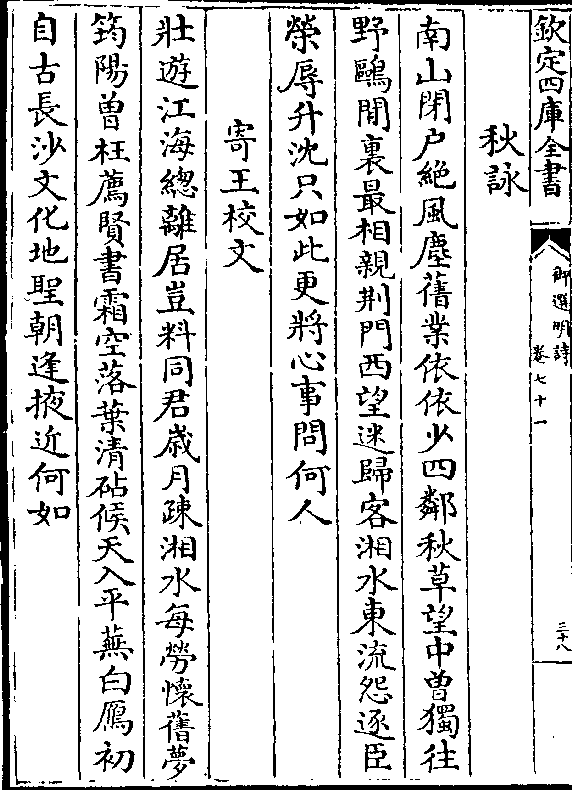 欽定四庫全書
御選明詩
卷七十一
三十八
秋詠
南山閉户絶風塵舊業依依少四鄰秋草望中曾獨往
野鷗閒裏最相親荆門西望迷歸客湘水東流怨逐臣
榮辱升沈只如此更將心事問何人
寄王校文
壯遊江海總離居豈料同君歲月疎湘水每勞懷舊夢
筠陽曾枉薦賢書霜空落葉清砧候天入平蕪白鴈初
自古長沙文化地聖朝逢掖近何如